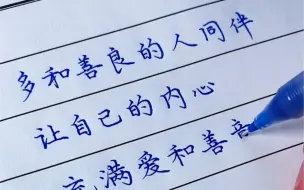 多和善良的人同伴
让自己的内心
充满爱和善意